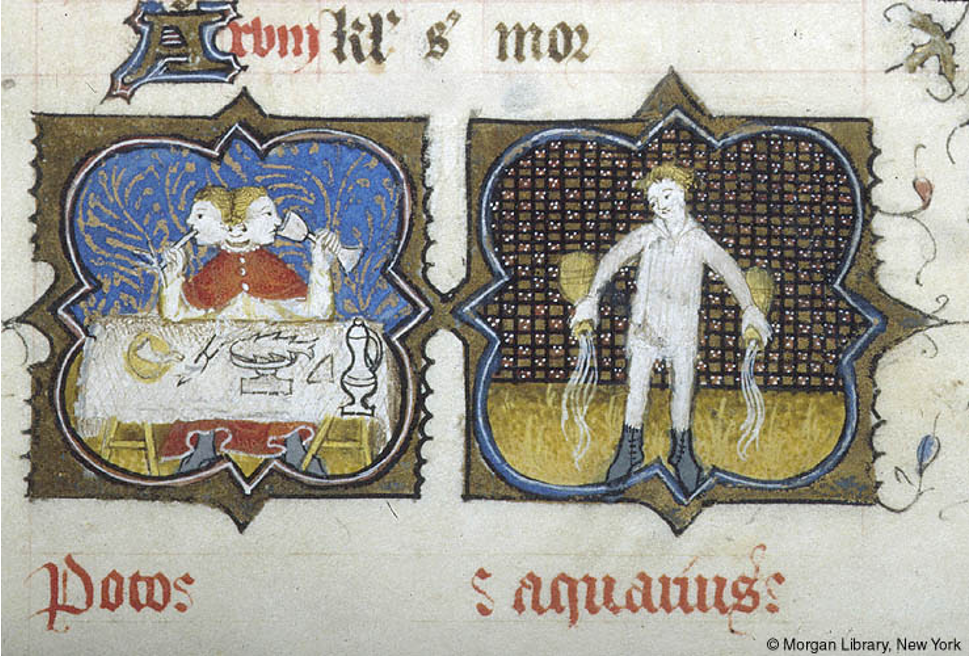 Arvm kl' s mor
Poto:
s aquarius:
© Morgan Library, New York